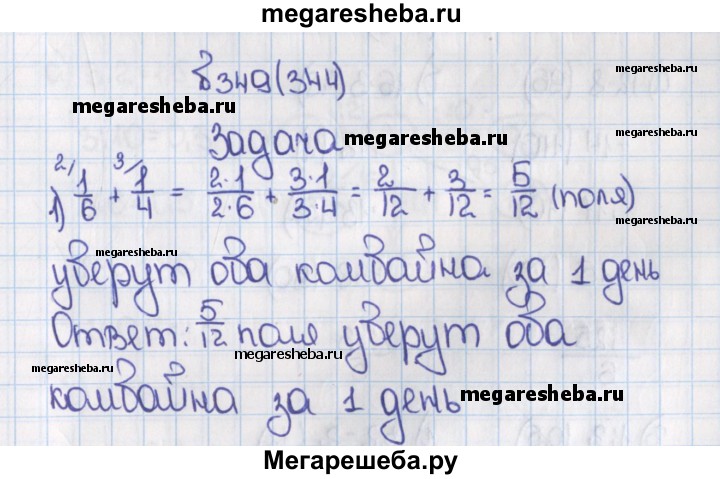 megaresheba.ru
в349(344)
megaresheba.ru
megaresheba.ru
Задача megaresheba.ru
1) 2/ 1/6 + 3/ 1/4 = 2·1/2·6 + 3·1/3·4 = 2/12 + 3/12 = 5/12 (поля)
megaresheba.ru
megaresheba.ru
уберут оба комбайна за 1 день
Ответ: 5/12 поля уберут оба
megaresheba.ru
megaresheba.ru
megaresheba.ru
комбайна за 1 день
megaresheba.ru
Мегарешеба.ру